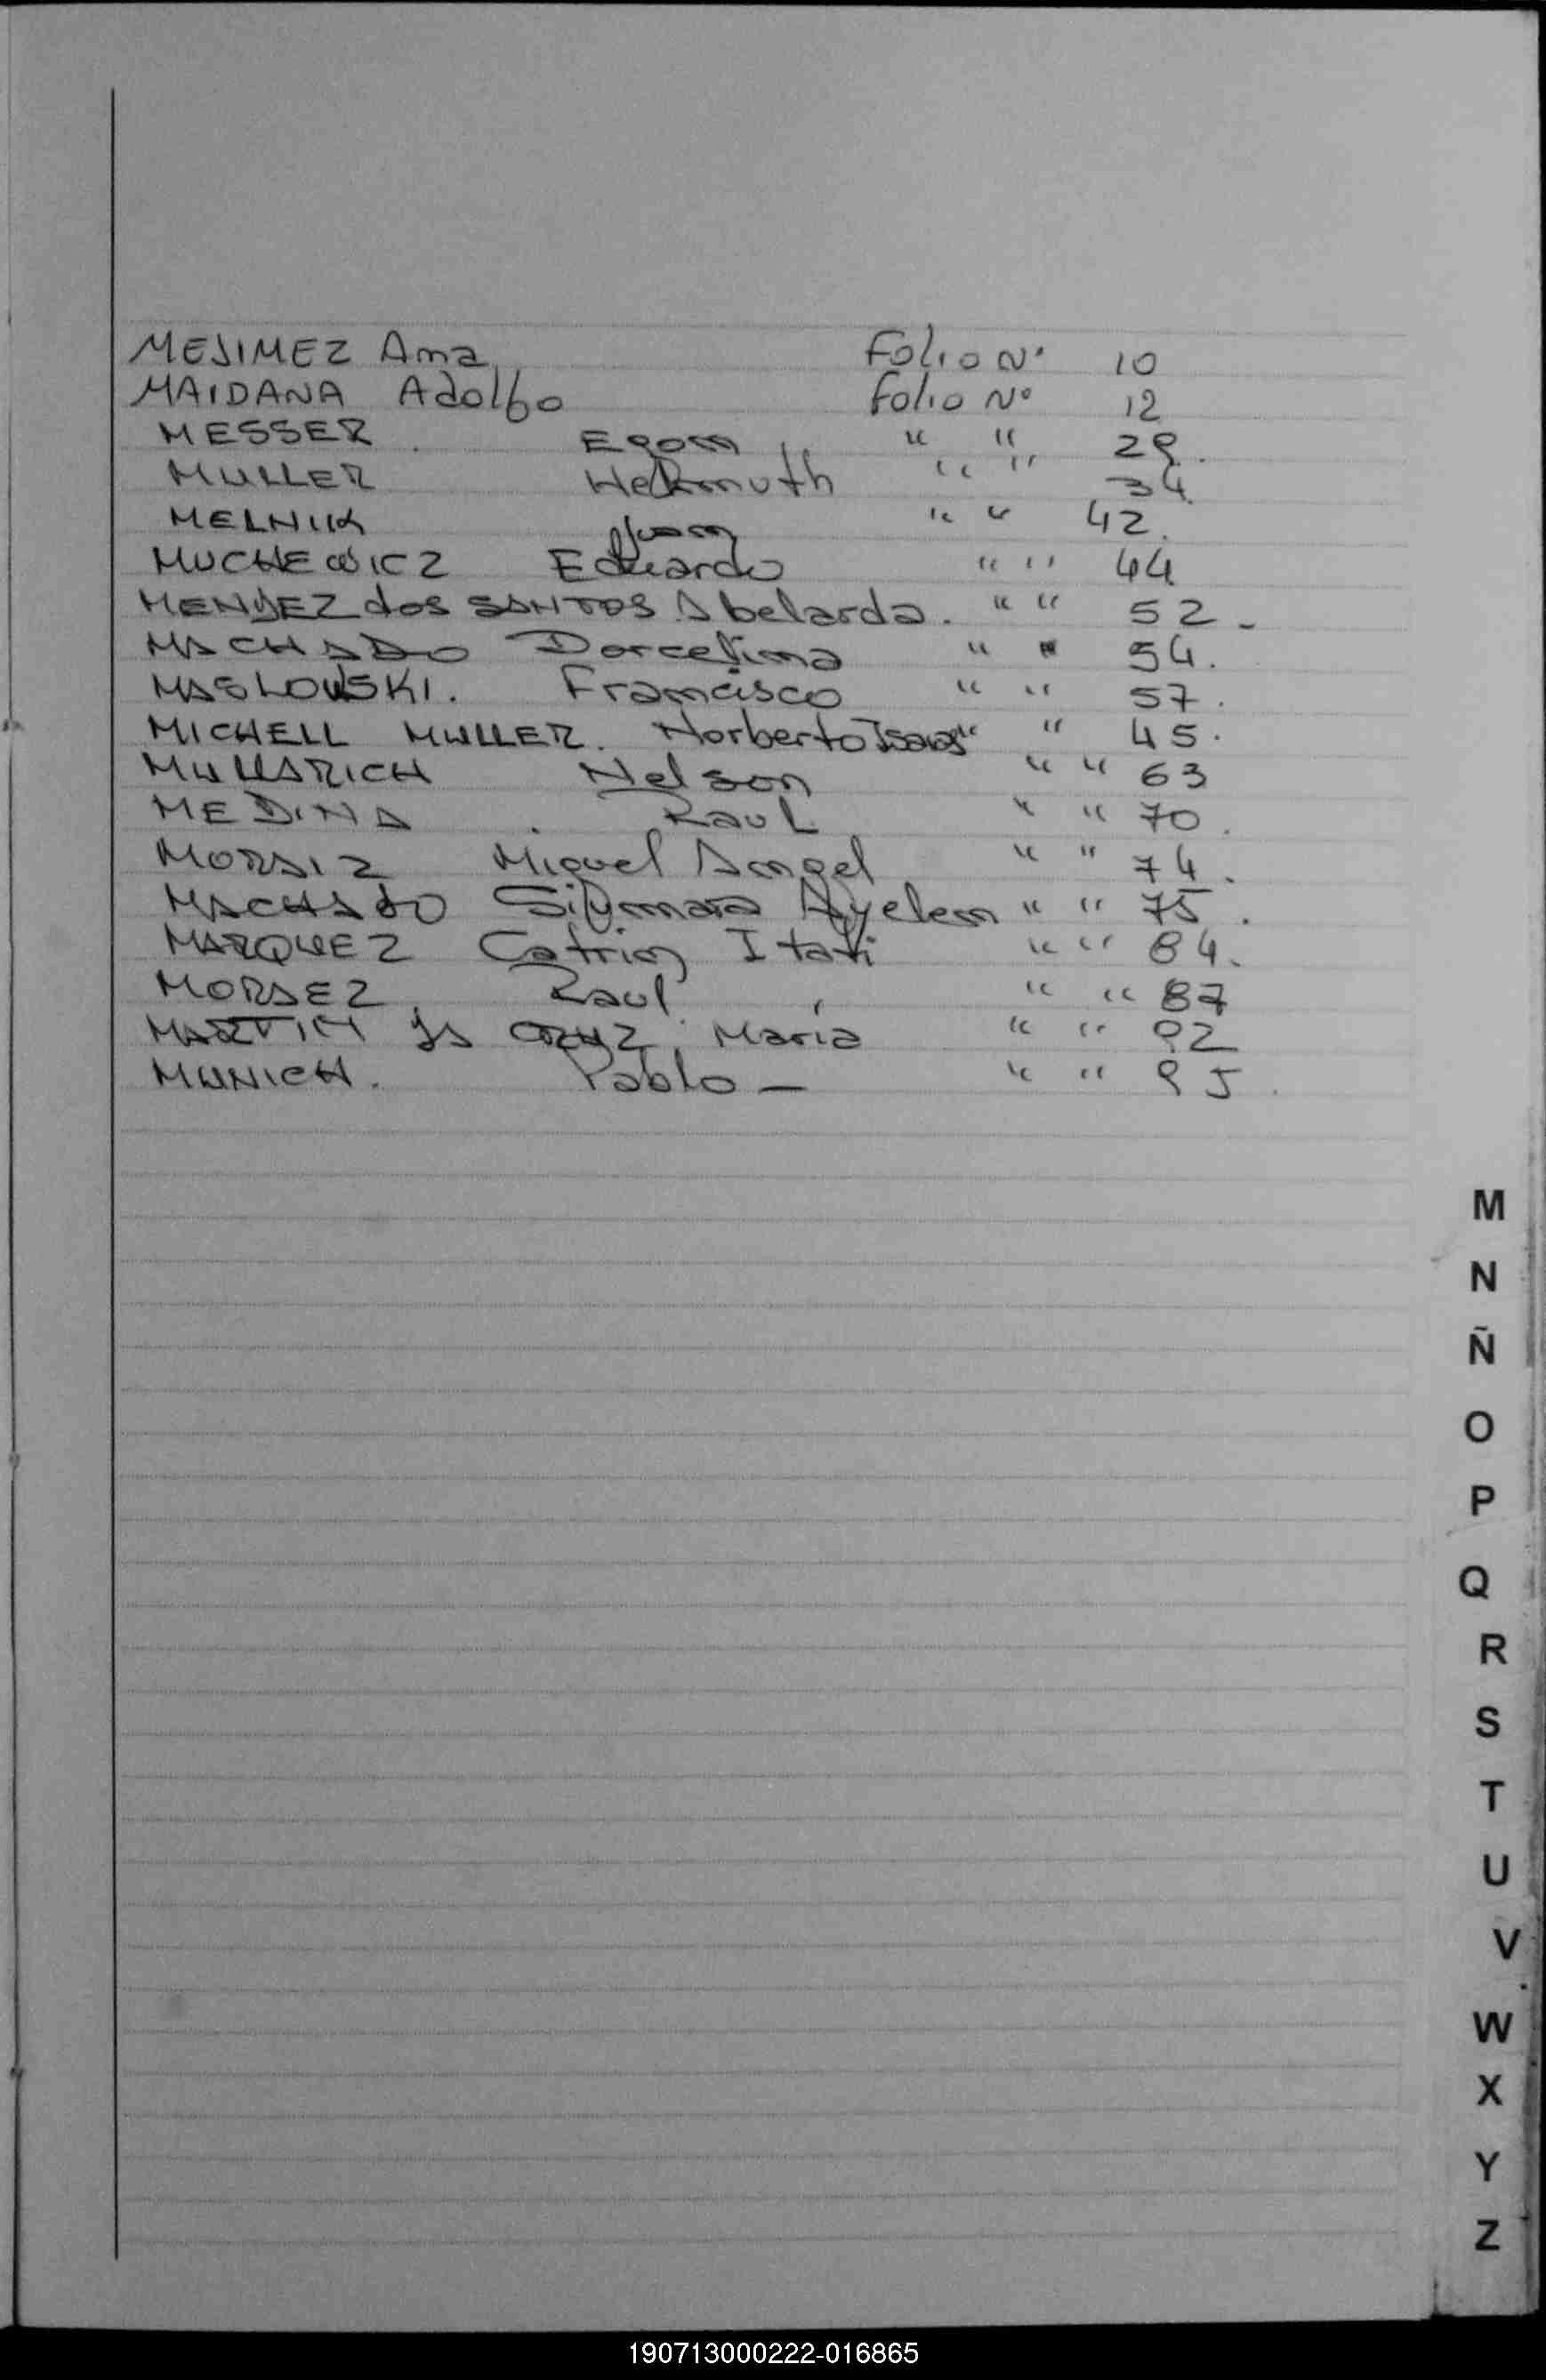 MEJIMEZ Ama Folio N° 10
MAIDANA Adolfo Folio N° 12
MESSER Egon " " 29.
MULLER Helmuth " " 34.
MELNIK Juan " " 42.
MUCHEWICZ Eduardo " " 44
MENDEZ dos SANTOS Abelardo. " " 52-
MACHADO Dorcelina " " 54.
MASLOWSKI. Francisco " " 57.
MICHELL MULLER. Norberto Isaias " " 45.
Nelson " " 63
MEDINA. Raul " " 70.
MORAIZ Miguel Angel " " 74.
MACHADO Silvmara Ayelen " " 75.
MARQUEZ Catrin Itati " " 84.
MORAEZ. Raul " " 87
MARTIN da CRUZ Maria " " 92
MUNICH. Pablo - " " 95.
M
N
Ñ
O
P
Q
R
S
T
U
V
W
X
Y
Z
190713000222-016865